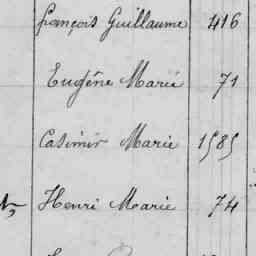 françois Guillaume 416
Eugêne Marie 71
Casimir Marie 1585
Henri Marie 74